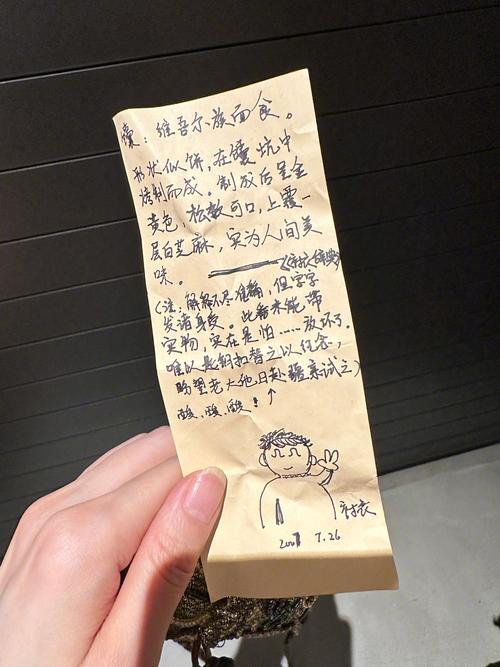 馕：维吾尔族面食。
形状似饼，在馕坑中
烤制而成。制成后呈金
黄色，松散可口，上覆一
层白芝麻，实为人间美
味。
（注：解释不尽准确，但字字
发诸身受。此番未能带
实物，实在是怕……放坏了。
唯以是钥扣替之以任念，
盼望老大他日赴疆亲试之）
酸、酸、酸！↑
2007 7.26